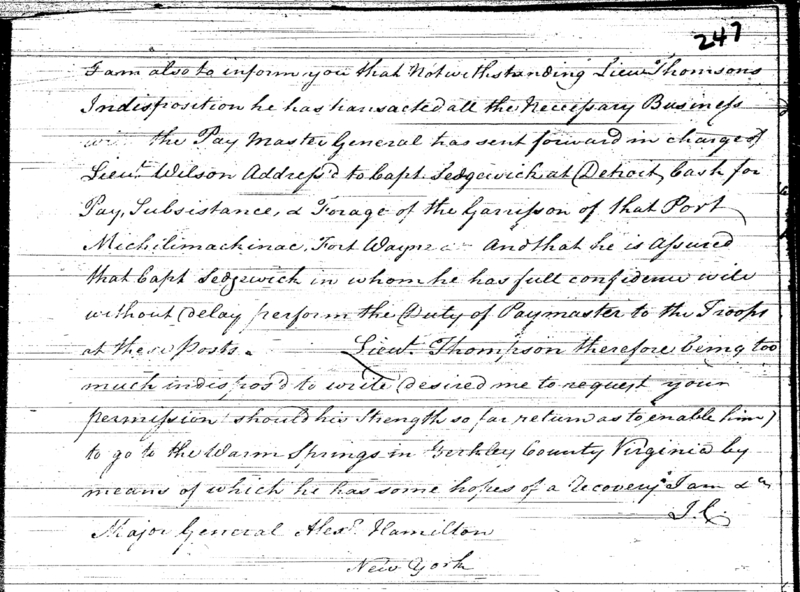 247
I am also to inform you that Notwithstanding Lieut Thomsons
Indisposition he has transacted all the Necessary Business
the Pay Master General has sent forward in charge of
Lieut. Wilson Address'd to Capt. Sedgewick at Detroit, Cash for
Pay, Subsistance, & Forage of the Garrison of that Port
Michilimackinac, Fort Wayne And that he is Assured
that Capt Sedgewick in whom he has full confidence will
without delay perform the Duty of Paymaster to the Troops
at these Posts. Lieut. Thompson therefore being too
much indispos'd to write desired me to request your
permission (should his Strength so far return as to enable him)
to go to the Warm Springs in Berkley County Virginia by
means of which he has some hopes of a recovery. I am &c
J. C.
Major General Alexr. Hamilton
New York